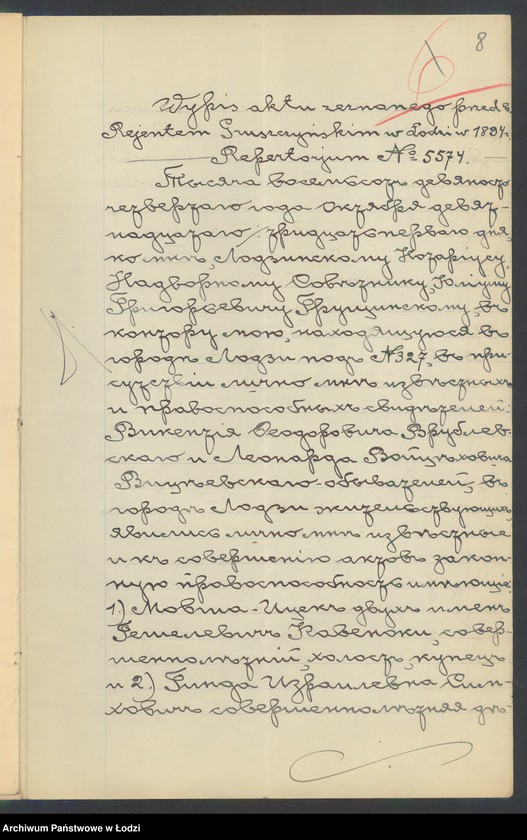 8
Wypis aktu zeznanego przed b.
Rejentem Gruszczyńskim w Łodzi w 1894 r.
Repertorjum № 5574.
Тысяча восемьсотъ девяносто
четвертаго года Октября девят-
надцатаго / тридцать перваго дня
ко мнѣ, Лодзинскому Нотаріусу,
Надворному Совѣтнику,
Григорьевичу Грущинскому, въ
контору мою, находящуюся въ
городѣ Лодзи подъ № 327, въ при-
сутствіи лично мнѣ извѣстныхъ
и правоспособныхъ свидѣтелей:
Викентія Ѳеодоровича Врублев-
скаго и Леонарда Войцѣховича
обывателей, въ
городѣ Лодзи жительствующихъ,
явились лично мнѣ извѣстные
и къ совершенію актовъ закон-
ную правоспособность имѣющіе:
1.) Мовша-Ицекъ двухъ именъ
Гешелевичъ, совер-
шеннолѣтній, холостъ, купецъ
и 2.) Гинда Израилевна Сим-
ховичъ совершеннолѣтняя дѣ-
Archiwum Państwowe w Łodzi